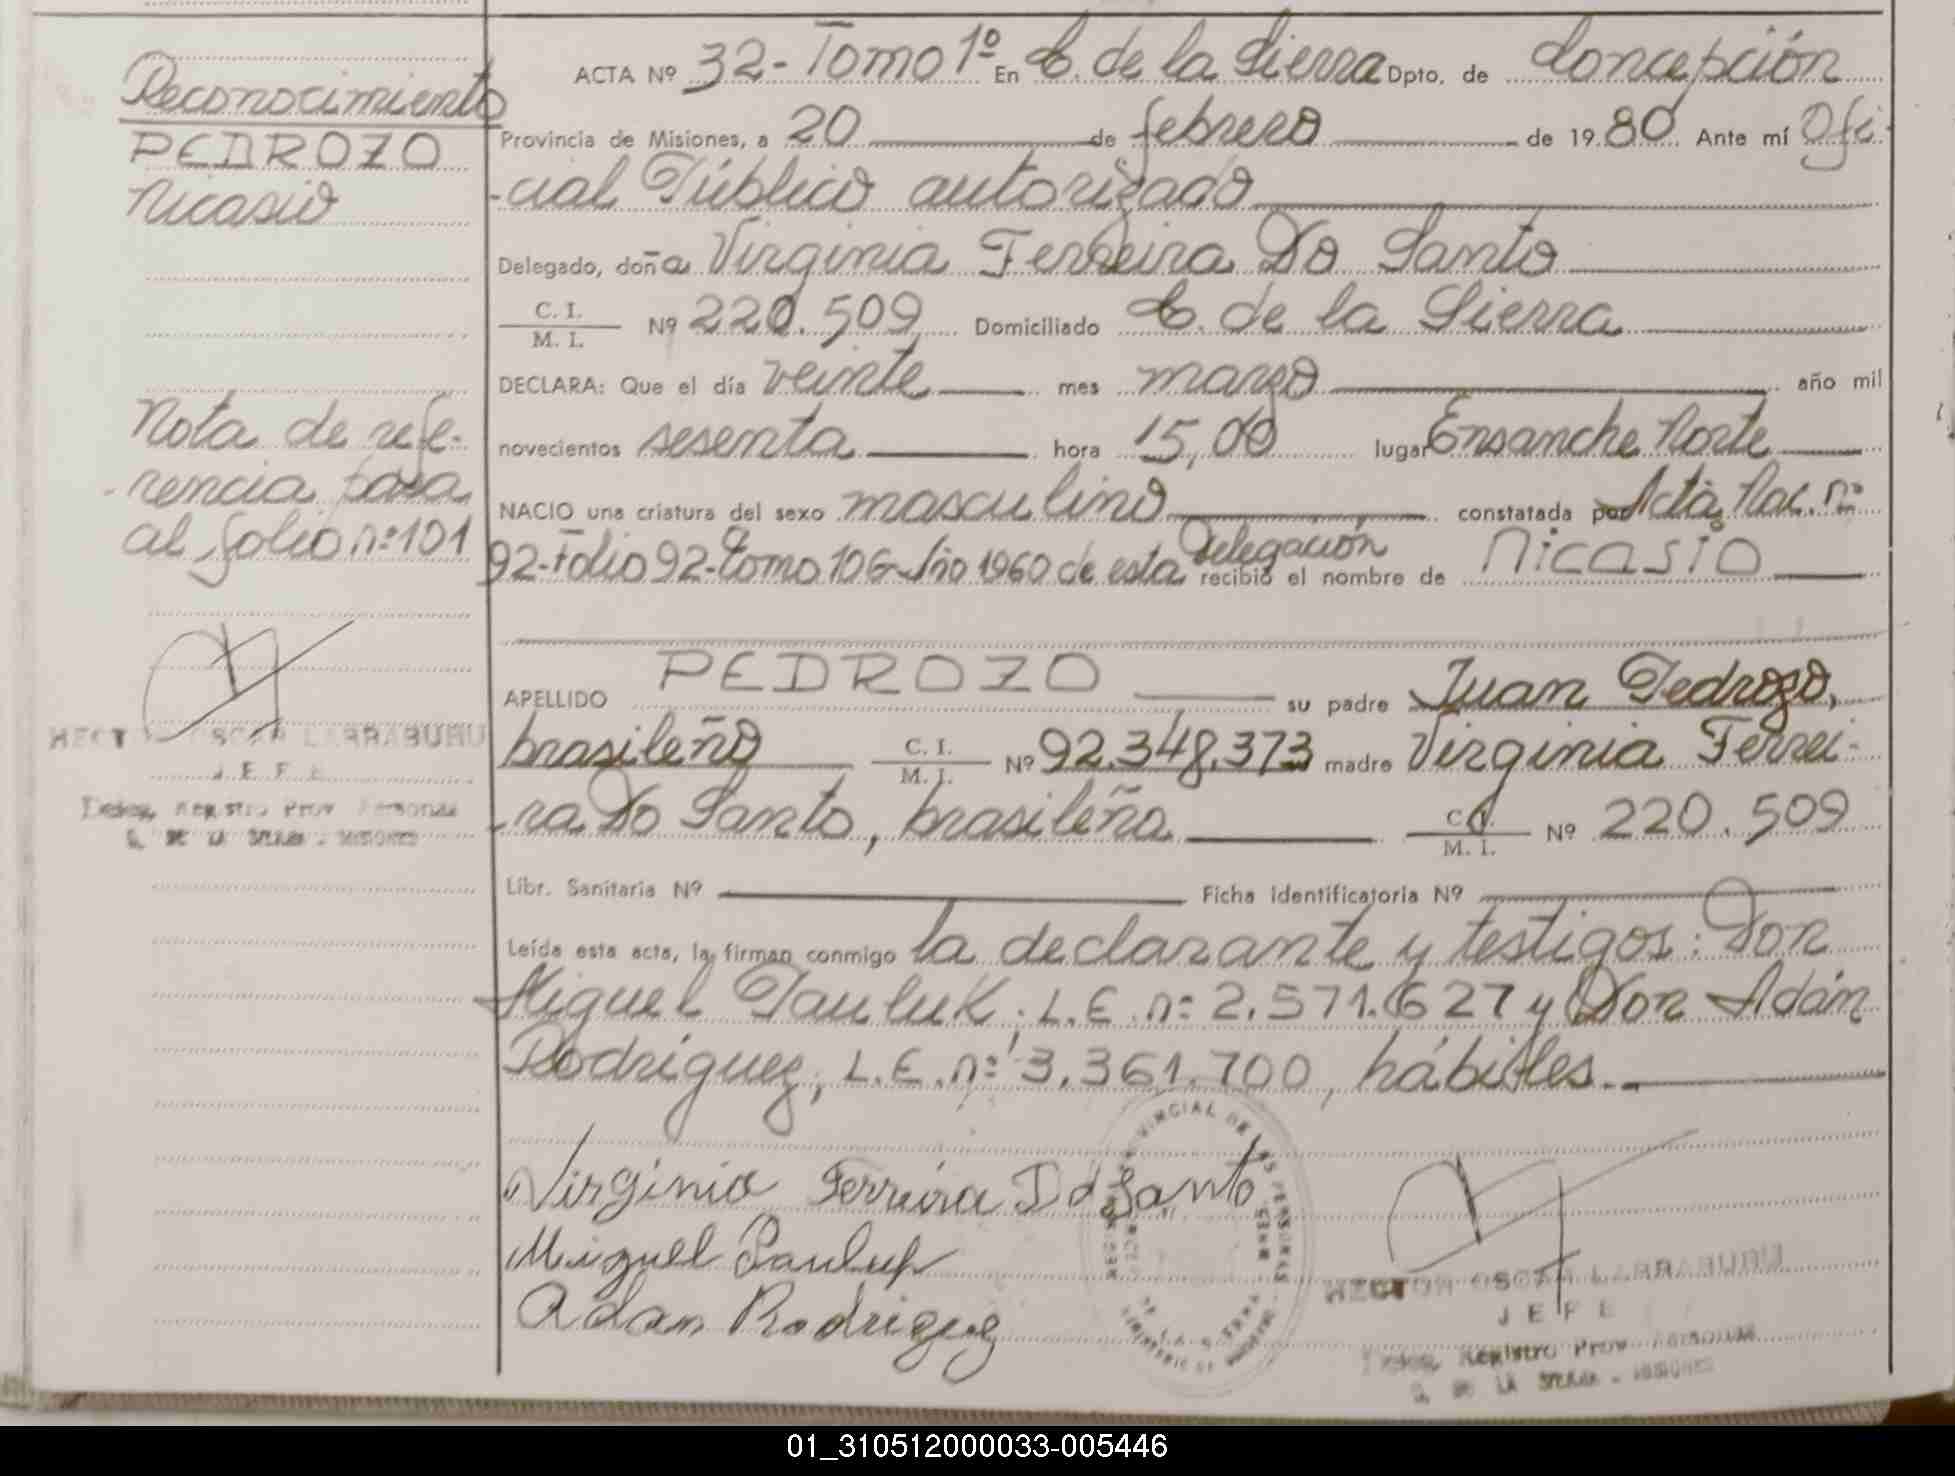 Reconocimiento
PEDROZO
Nicasio
Nota de refe-
rencia pasa
al folio nº 101
HECTOR OSCAR LARRABURU
JEFE
Deleg. Registro Prov. Personas
C. DE LA SIERRA - MISIONES
ACTA Nº 32 - Tomo 1º En C. de la Sierra Dpto. de Concepción
Provincia de Misiones, a 20 de febrero de 1980 Ante mí Ofi-
-cial Público autorizado
Delegado, doña Virginia Ferreira Do Santo
C. I.
M. I. Nº 220.509 Domiciliado C. de la Sierra
DECLARA: Que el día veinte mes marzo año mil
novecientos sesenta hora 15,00 lugar Ensanche Norte
NACIO una criatura del sexo masculino constatada por Acta Nac. nº
92-Folio 92-Tomo 106-Año 1960 de esta Delegación recibió el nombre de NICASIO
APELLIDO PEDROZO su padre Juan Pedrozo,
brasileño C. I. M. I. Nº 92.348.373 madre Virginia Ferrei-
-ra Do Santo, brasileña C. I. M. I. Nº 220.509
Libr. Sanitaria Nº Ficha Identificatoria Nº
Leída esta acta, la firman conmigo la declarante y testigos: Don
Miguel Pauluk. L.E. nº 2.571.627 y Don Adán
Rodríguez, L.E. nº 3.361.700, hábiles.
Virginia Ferreira Do Santo
Miguel Pauluk
Adan Rodriguez
HECTOR OSCAR LARRABURU
JEFE
Deleg. Registro Prov. Personas
C. DE LA SIERRA - MISIONES
01_310512000033-005446